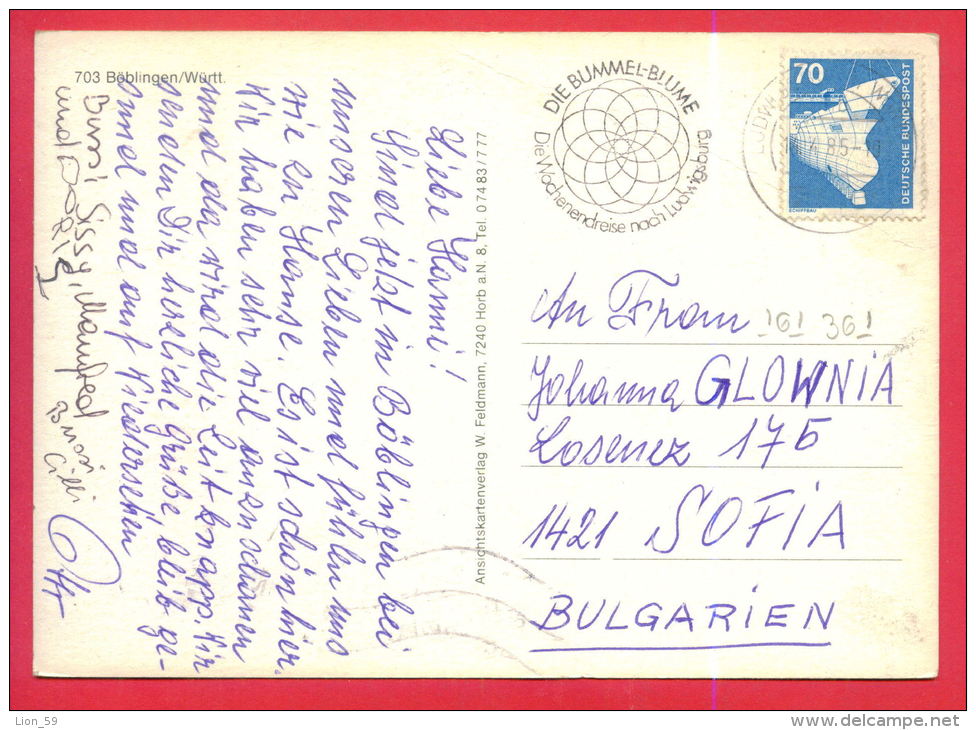 703 Böblingen/Württ.
Liebe Hanni!
Sind jetzt in Böblingen bei
unseren Lieben und fühlen uns
wie zu Hause. Es ist schön hier.
Wir haben sehr viel anzuschauen
und da wird die Zeit knapp. Wir
senden Dir herzliche Grüße bleib ge-
sund und auf Wiedersehen
Burni Sissy, Manfred
und
Cilli
Ansichtskartenverlag W. Feldmann, 7240 Horb a.N. 8, Tel. 07483/777
DIE BUMMEL-BLUME
Die Wochenendreise nach Ludwigsburg
70
DEUTSCHE BUNDESPOST
SCHIFFBAU
An Frau 161 361
Johanna GLOWNIA
Losenez 175
1421 SOFIA
BULGARIEN
Lion_59
www.delcampe.net